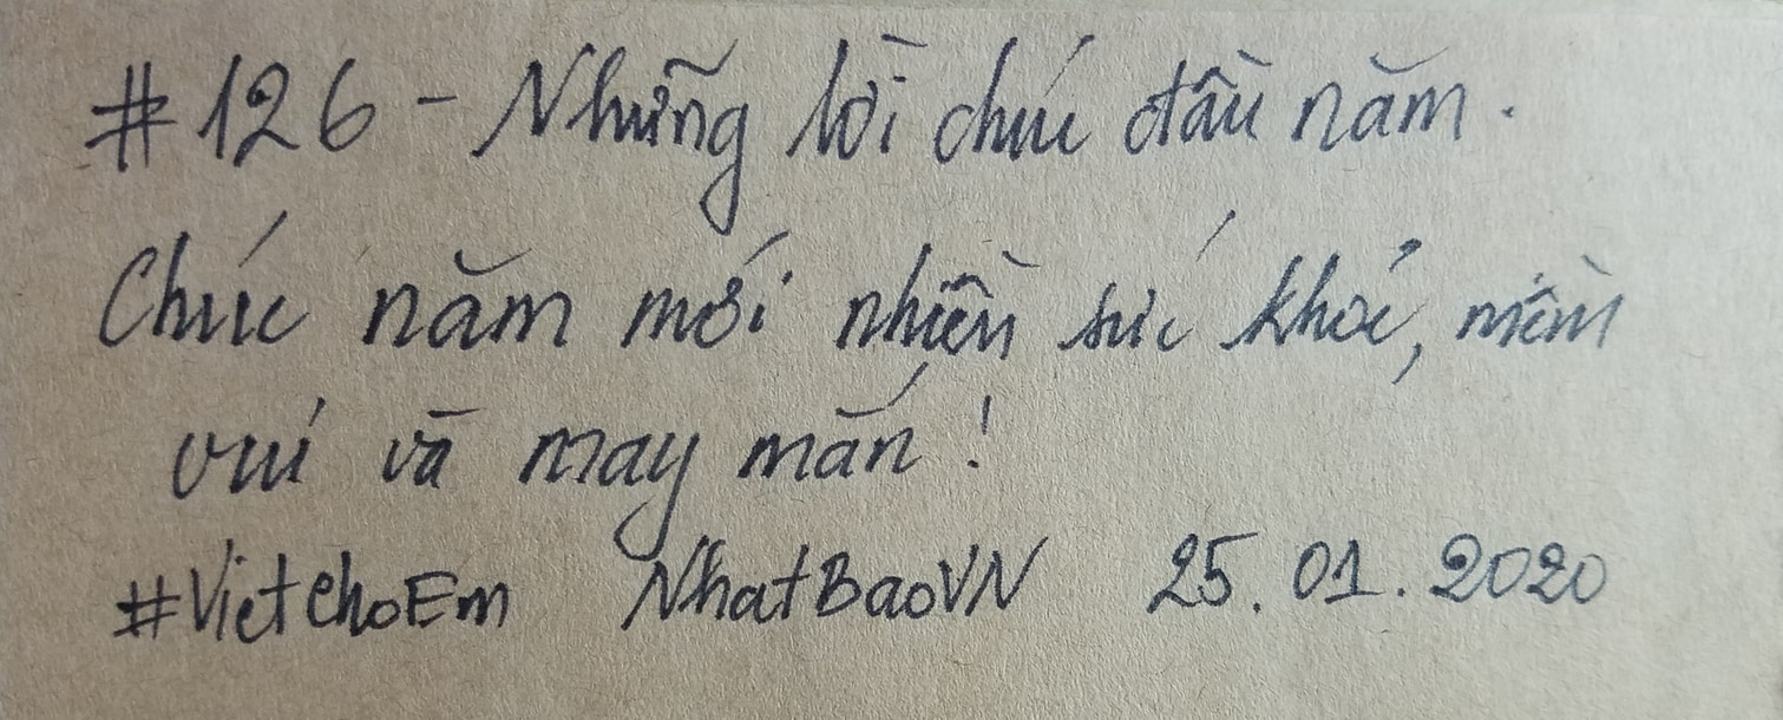 #126 - Những lời chúc đầu năm.
Chúc năm mới nhiều sức khỏe, niềm
vui và may mắn!
#VietchoEm NhatBaoVN 25.01.2020